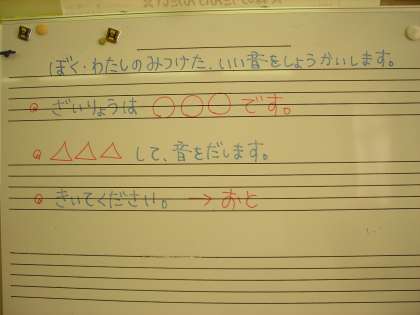 ぼく・わたしのみつけた、いい音をしょうかいします。
ざいりょうは ○○○ です。
△△△ して、音をだします。
きいてください。 → おと